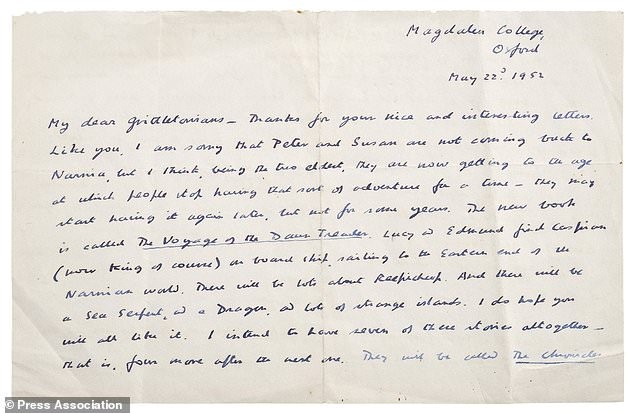 Magdalen College,
Oxford
May 22d 1952
My dear Grittletonians – Thanks for your nice and interesting letters.
Like you, I am sorry that Peter and Susan are not coming back to
Narnia, but I think, being the two eldest, they are now getting to the age
at which people stop having that sort of adventure for a time – they may
start having it again later, but not for some years. The new book
is called The Voyage of the Dawn Treader. Lucy & Edmund find Caspian
(now King of course) on board ship, sailing to the Eastern end of the
Narnian world. There will be lots about Reepicheep. And there will be
a Sea Serpent, & a Dragon, & lots of strange islands. I do hope you
will all like it. I intend to have seven of these stories altogether –
that is, four more after the next one. They will be called The Chronicles
© Press Association